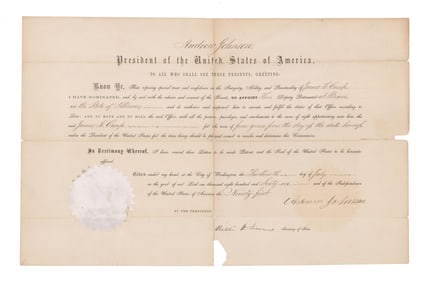 Andrew Johnson,
President of the United States of America,
TO ALL WHO SHALL SEE THESE PRESENTS, GREETING:
Know Ye, That reposing special trust and confidence in the Integrity, Ability, and Punctuality of James L. Camp,
I HAVE NOMINATED, and by and with the advice and consent of the Senate, DO APPOINT him Deputy Postmaster at Dixon
in the State of Illinois and do authorize and empower him to execute and fulfil the duties of that Office according to
Law; AND TO HAVE AND TO HOLD the said Office, with all the powers, privileges and emoluments to the same of right appertaining unto him, the
said James L. Camp for the term of four years from the day of the date hereof
the President of the United States for the time being should be pleased sooner to revoke and determine this Commission.
In Testimony Whereof, I have caused these Letters to be made Patent, and the Seal of the United States to be hereunto
affixed.
Given under my hand, at the City of Washington, the day of July
in the year of our Lord one thousand eight hundred and Sixty six and of the Independence
of the United States of America the Ninety first.
Andrew Johnson
BY THE PRESIDENT:
Secretary of State.